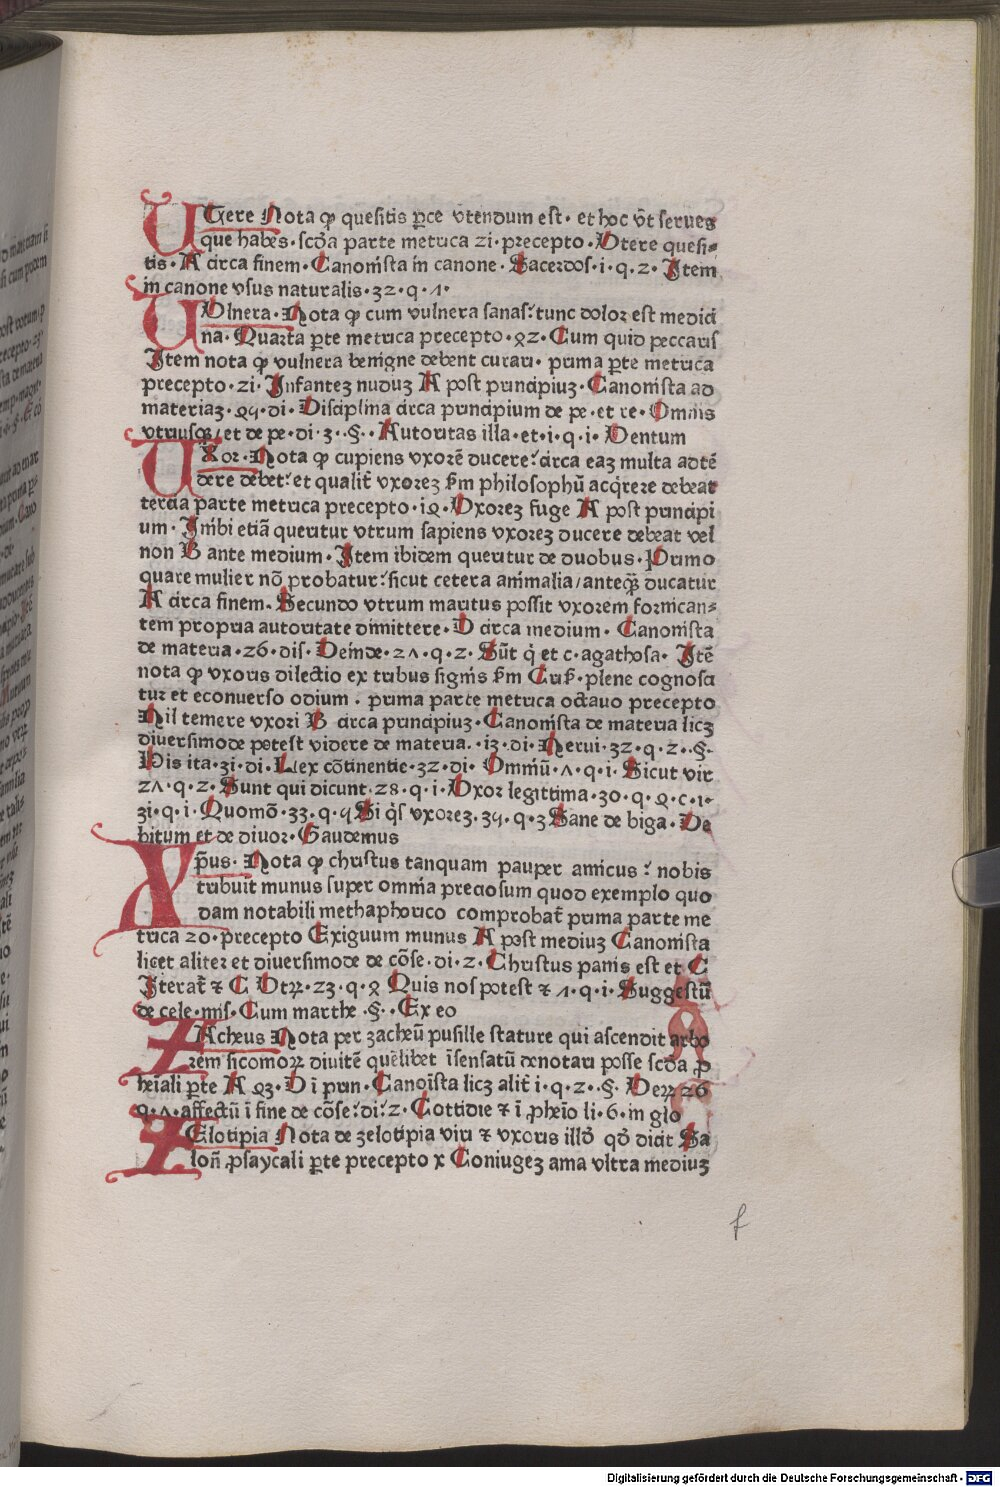 UTere Nota ꝙ quesitis ꝑce vtendum est· et hoc vt̄ serues
que habes· scďa parte metrica zi· precepto· Vtere quesi-
tis· A circa finem· Canonista in canone· Sacerdos· i· q· 2· Item
in canone vsus naturalis· 32· q· ʌ·
UVlnera· Nota ꝙ cum vulnera sanas: tunc dolor est medici
na· Quarta ꝑte metrica precepto· 92· Cum quid peccaris
Item nota ꝙ vulnera benigne debent curari· prima ꝑte metrica
precepto· zi· Infanteʒ nuduʒ A post principiuʒ· Canonista ad
materiaʒ· 24· di· Disciplina circa principium de pe· et re· Omnis
vtriusqʒ/ et de pe· di· 3··§·· Autoritas illa· et· i· q· i· Ventum
UXor· Nota ꝙ cupiens vxorē ducere: circa eaʒ multa adtē
dere debet: et qualit̄ vxoreʒ ẜm philosophū acq̇rere debeat
tercia parte metrica precepto· i9· Vxoreʒ fuge A post principi
um· Inibi etiā queritur vtrum sapiens vxoreʒ ducere debeat vel
non B ante medium· Item ibidem queritur de duobus· Primo
quare mulier nō probatur: sicut cetera animalia/ anteq̄ʒ ducatur
A circa finem· Secundo vtrum maritus possit vxorem fornican-
tem propria autoritate dimittere· D circa medium· Canonista
de materia· 26· dis· Deinde· 2ʌ· q· 2· Sūt q̇ et c· agathosa· Itē
nota ꝙ vxoris dilectio ex tribus signis ẜm Cuẜ· plene cognosci
tur et econuerso odium · prima parte metrica octauo precepto
Nil temere vxori B circa principiuʒ· Canonista de materia licʒ
diuersimode potest videre de materia· · i3· di· Nerui· 32· q· 2··§·
His ita· 3i· di· Lex cōtinentie· 32· di· Omniū· ʌ· q· i· Sicut vir
2ʌ· q· 2· Sunt qui dicunt· 28· q· i· Vxor legittima· 30· q· 9· c· i·
3i· q· i· Quomō· 33· q· 4 Si q̇s vxoreʒ· 34· q· 3 Sane de biga· De
bitum et de diuor· Gaudemus
Xp̄us· Nota ꝙ christus tanquam pauper amicus : nobis
tribuit munus super omnia preciosum quod exemplo quo
dam notabili methaphorico comprobat̄ prima parte me
trica 20· precepto Exiguum munus A post mediuʒ Canonista
licet aliter et diuersimode de cōse· di· 2· Christus panis est et C
Iterat̄ ⁊ C Vtꝝ· 23· q· 9 Quis nos potest ⁊ ʌ· q· i· Suggestū
de cele· mis· Cum marthe ·§· · Ex eo
ZAcheus Nota per zacheū pusille stature qui ascendit arbo
rem sicomoꝝ diuitē quēlibet īsensatū denotari posse scďa ꝓ
heīali ꝑte A 93· D ī prin· Canoīsta licʒ alit̄ i· q· 2· §· Veꝝ 26
q· ʌ· affectū ī fine de cōse: di: 2· Cottidie ⁊ ī ꝓheīo li· 6· in glo
ZElotipia Nota de zelotipia viri ⁊ vxoris illō qō dicit Sa
loñ ꝓsaycali ꝑte precepto x Coniugeʒ ama vltra mediuʒ
f
Digitalisierung gefördert durch die Deutsche Forschungsgemeinschaft · DFG